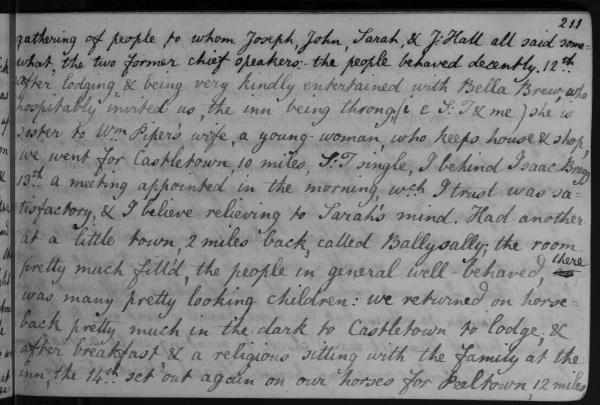 211
gathering of people, to whom Joseph, John, Sarah, & J: Hall all said some-
what the two former chief speakers:- the people behaved decently. 12th
after lodging, & being very kindly entertained with Bella Brew, who
hospitably invited us, the inn being throng, (i e S: T & me) she is
sister to Wm Piper's wife, a young woman, who keeps house & shop,
we went for Castletown, 10 miles, S: T single, I behind Isaac Bragg
13th a meeting appointed in the morning, wch I trust was sa-
tisfactory, & I believe relieving to Sarah's mind. Had another
at a little town, 2 miles back, called Ballysally; the room
pretty much fill'd, the people in general well behaved, there
was many pretty looking children: we returned on horse-
back pretty much in the dark to Castletown to lodge, &
after breakfast, & a religious sitting with the family at the
inn, the 14th set out again on our horses for Peeltown, 12 miles